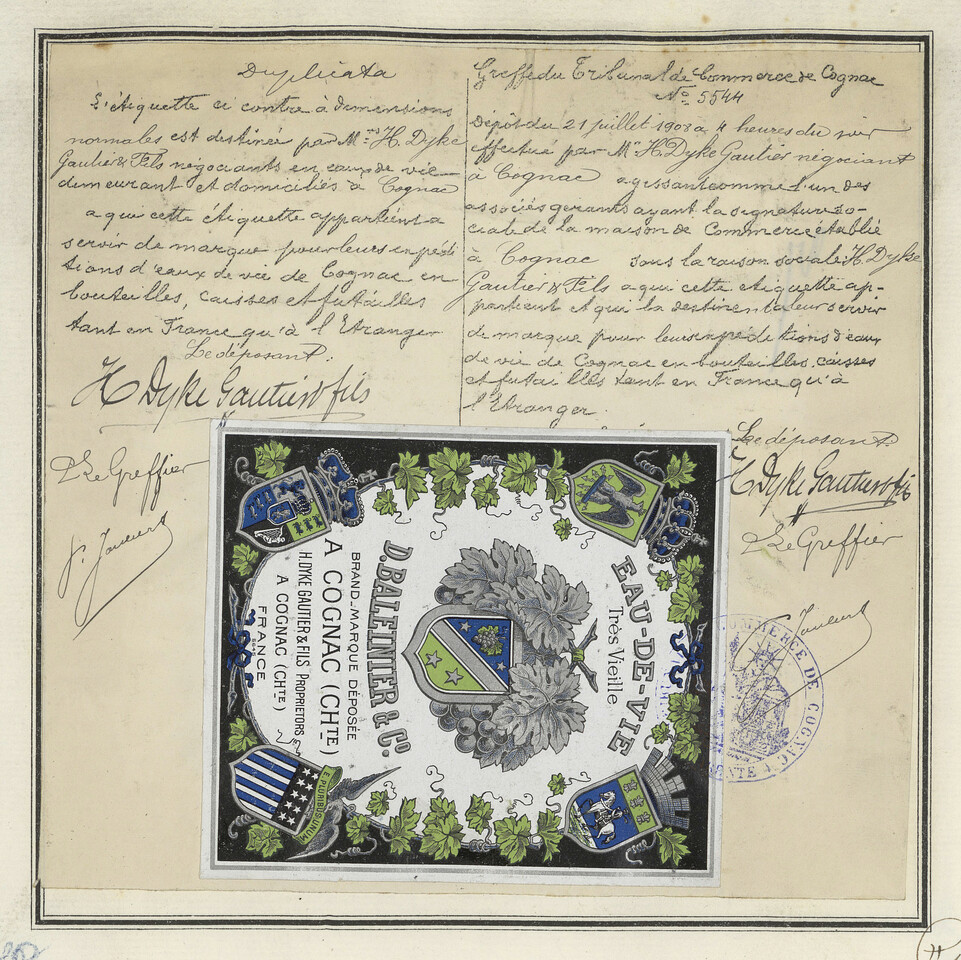 Duplicata
L'étiquette ci contre à dimensions
normales est destinée par Mrs H. Dyke
Gautier & Fils négociants en eaux de vie
demeurant et domiciliés à Cognac
a qui cette étiquette appartient a
servir de marque pour leurs expédi
tions d'eaux de vie de Cognac en
bouteilles, caisses et futailles
tant en France qu'à l'Etranger
Le déposant.
H Dyke Gautier & fils
Le Greffier
Greffe du Tribunal de Commerce de Cognac
No 5544
Dépôt du 21 juillet 1908 à 4 heures du soir
effectué par Mr H. Dyke Gautier négociant
à Cognac agissant comme l'un des
associés gerants ayant la signature so-
ciale de la maison de Commerce établie
à Cognac sous la raison sociale H. Dyke
Gautier & Fils a qui cette etiquette ap-
partient et qui la destinent a leur servir
de marque pour leurs expeditions d'eaux
de vie de Cognac en bouteilles, caisses
et futailles tant en France qu'à
l'Etranger.
Le déposant.
H. Dyke Gautier & fils
Le Greffier
EAU-DE-VIE
Très Vieille
D. BALFINIER & Co.
BRAND-MARQUE DÉPOSÉE
A COGNAC (CHTE)
H. DYKE GAUTIER & FILS PROPRIETORS
A COGNAC (CHTE)
FRANCE
E PLURIBUS UNUM
COMMERCE DE COGNAC